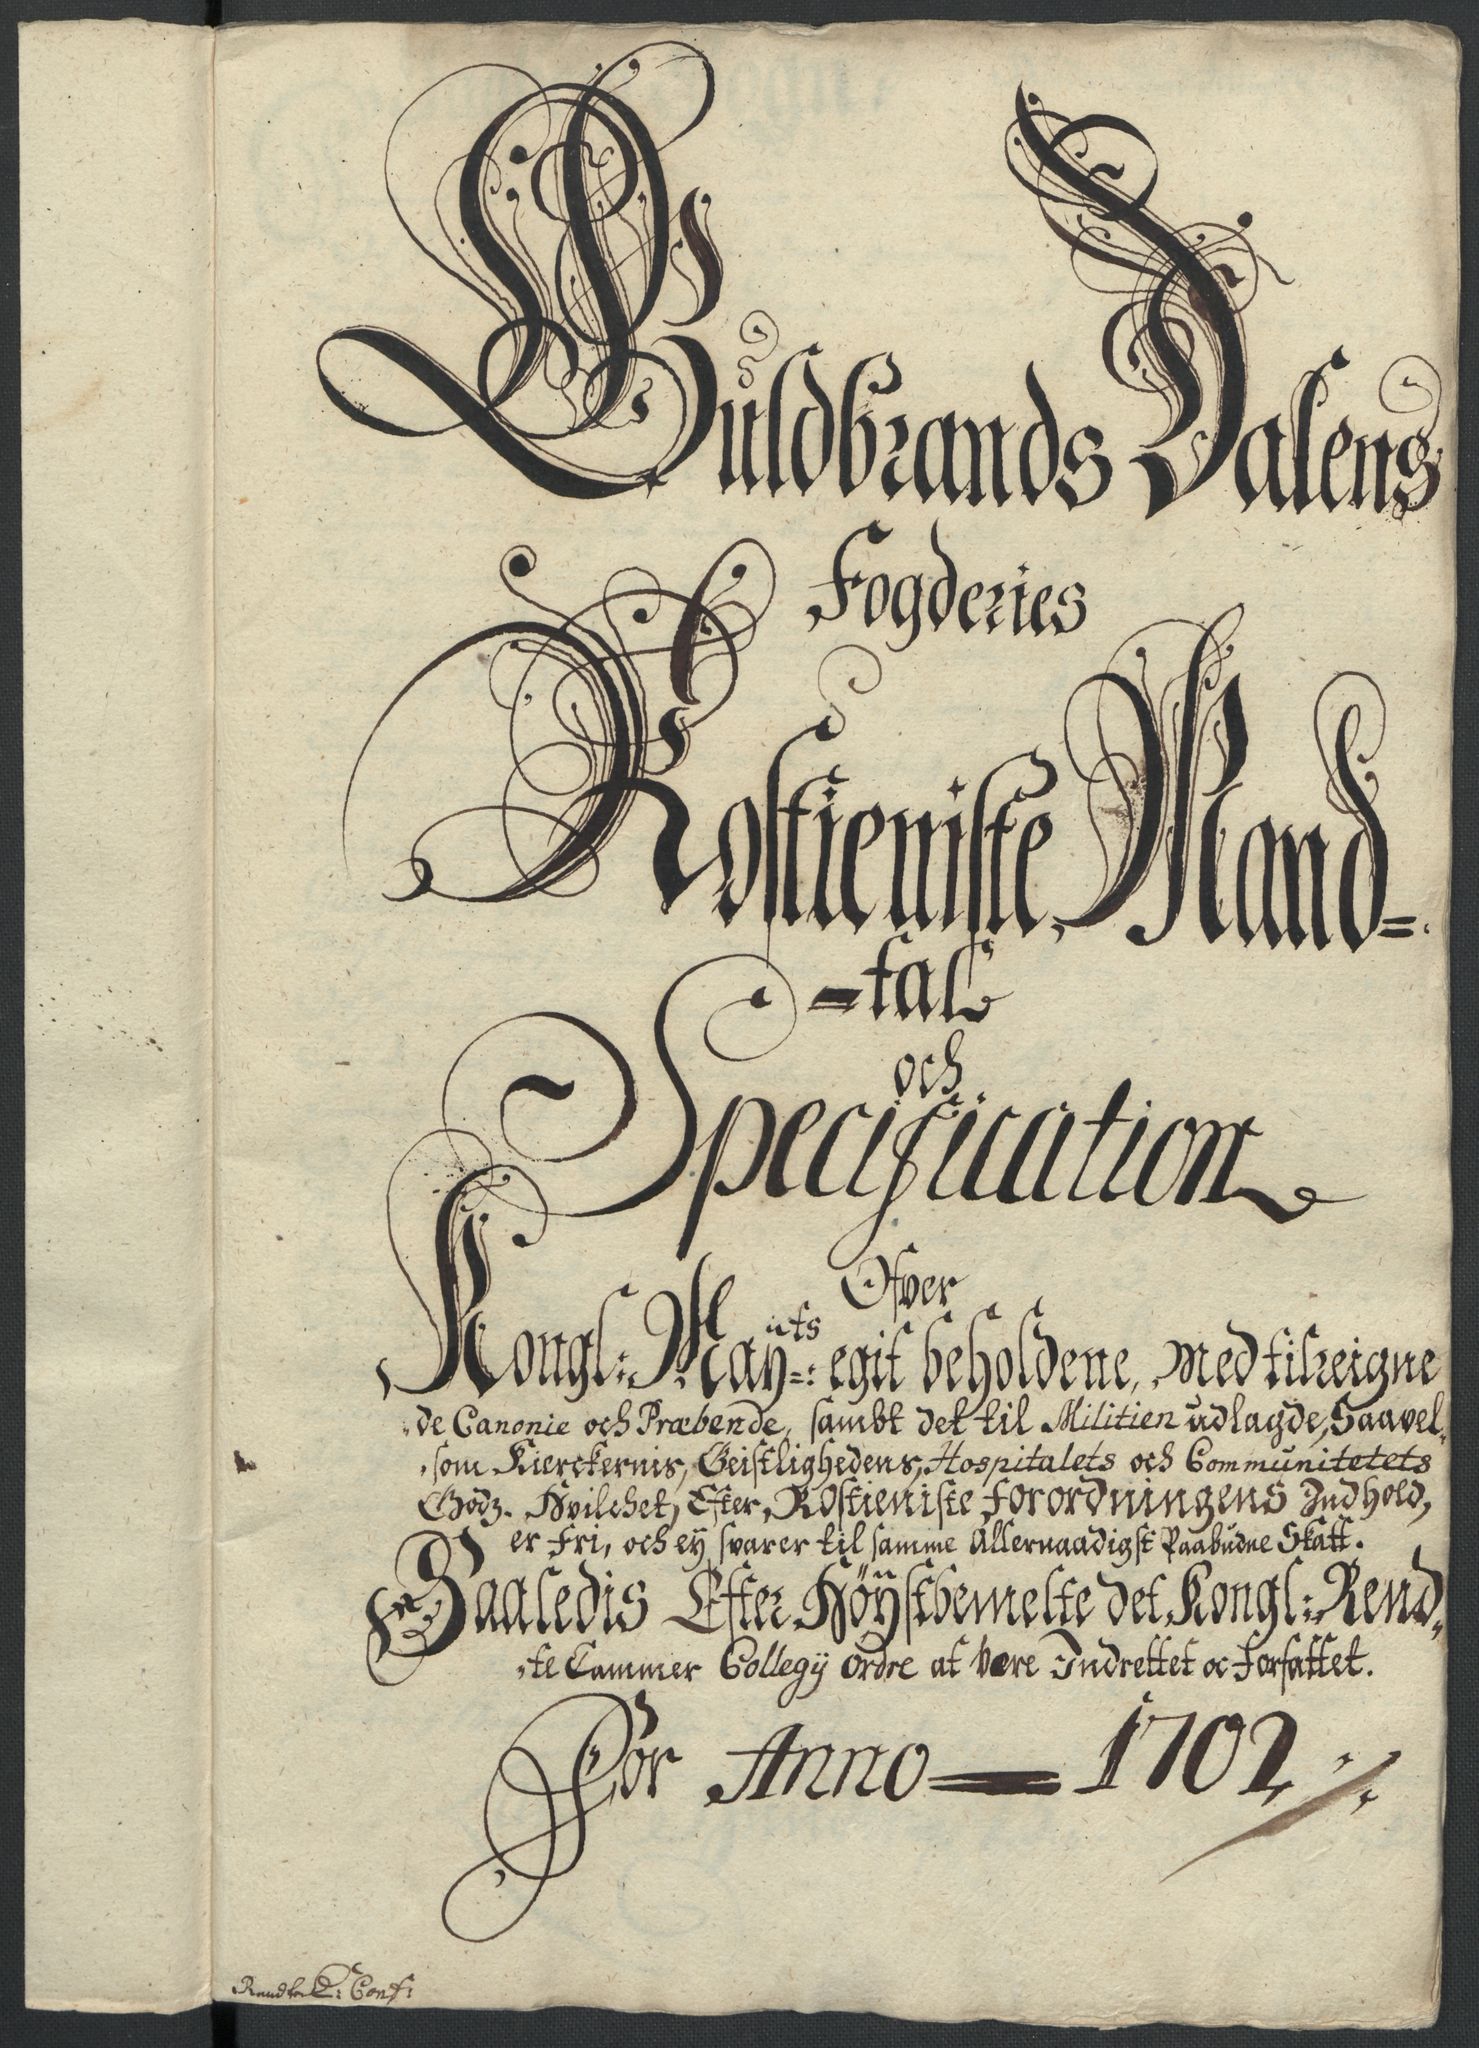 Guldbrands Dalens
Fogderies
Rostieniste Mand=
=tal
och
Specification
Ofver
Kongl: Mayts: egit beholdene, Med tilreigne
de Canonie och Præbende, sambt det til Militien udlagde, Saavel
som Kierckernis, Geistlighedens, Hospitalets och Communitetets
Godz. Hvilchet, Efter, Rostieniste forordningens Indhold,
er fri, och ey svarer til samme Allernaadigst Paabudne Skatt.
Saaledis Efter Høystbemelte det Kongl: Rend
te Cammer Collegij ordre at være Indrettet oc Forfattet.
For Anno 1702